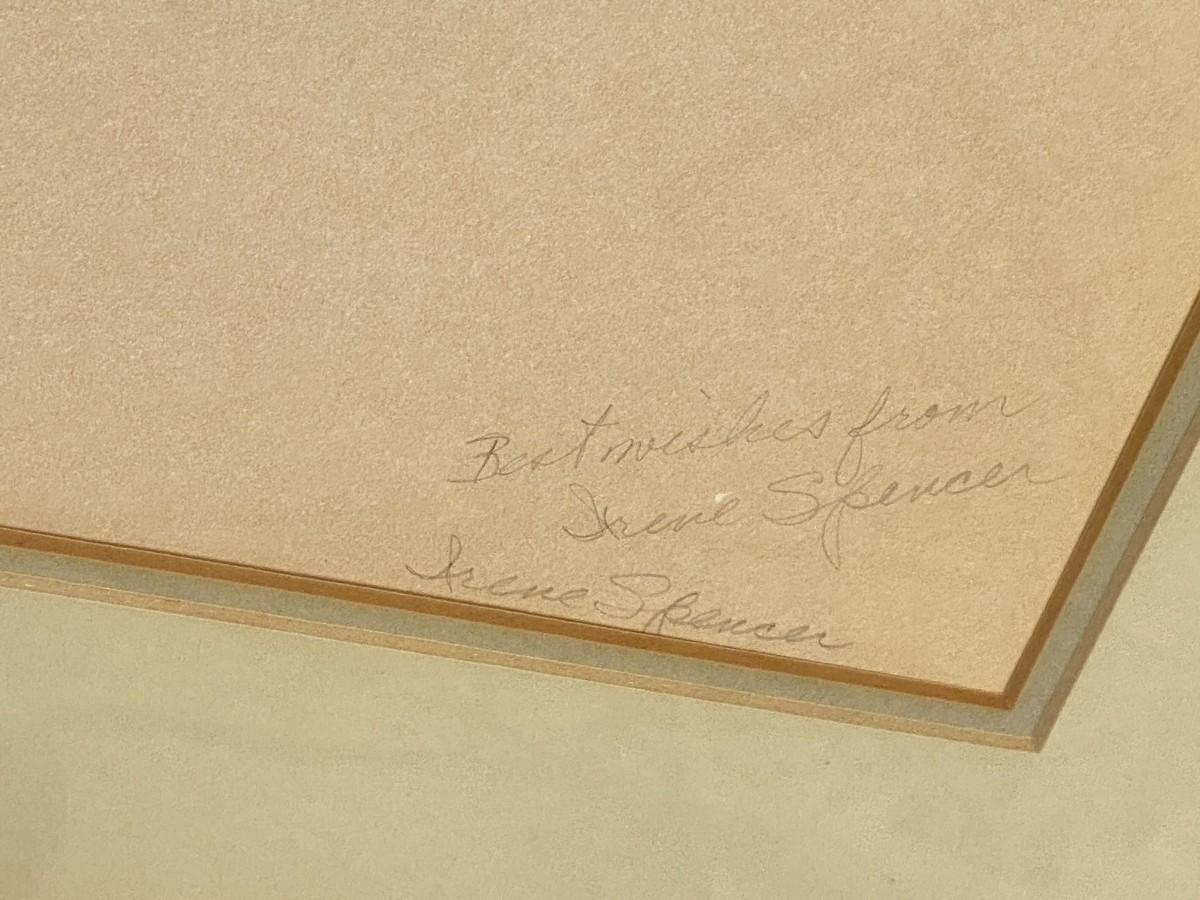 Best wishes from
Irene Spencer
Irene Spencer